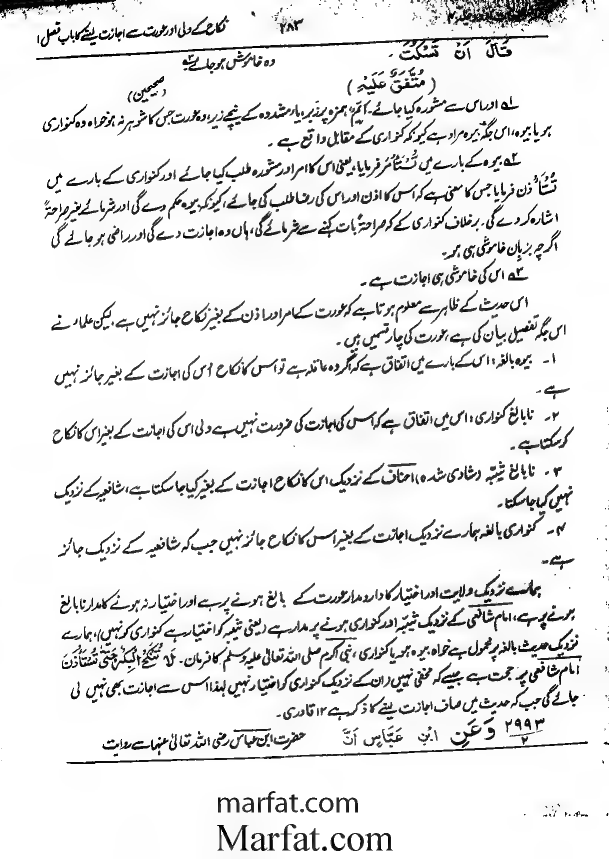 نکاح کے ولی اور عورت سے اجازت لینے کا باب فصل ۱
۲۸۳
قَالَ اَنْ تَسْكُتَ ۔
وہ خاموش ہو جائے ۳؎
(مُتَّفَقٌ عَلَيْهِ)
(صحیحین)
۱؎ اور اس سے مشورہ کیا جائے۔ اَیِّمٌ ہمزہ پر زبر، یاء مشددہ کے نیچے زیر، وہ عورت جس کا شوہر نہ ہو خواہ وہ کنواری
ہو یا بیوہ، اس جگہ بیوہ مراد ہے کیونکہ کنواری کے مقابل واقع ہے ۔
۲؎ بیوہ کے بارے میں تُسْتَأْمَرُ فرمایا، یعنی اس کا امر اور مشورہ طلب کیا جائے اور کنواری کے بارے میں
تُسْتَأْذَن فرمایا جس کا معنی ہے کہ اس کا اذن اور اس کی رضا طلب کی جائے، کیونکہ بیوہ حکم دے گی اور شرمائے بغیر صراحۃً
اشارہ کر دے گی۔ برخلاف کنواری کے کہ صراحۃً بات کہنے سے شرمائے گی، ہاں وہ اجازت دے گی اور راضی ہو جائے گی
اگرچہ بزبان خاموشی ہی ہو۔
۳؎ اس کی خاموشی ہی اجازت ہے ۔
اس حدیث کے ظاہر سے معلوم ہوتا ہے کہ عورت کے امر اور اذن کے بغیر نکاح جائز نہیں ہے، لیکن علماء نے
اس جگہ تفصیل بیان کی ہے، عورت کی چار قسمیں ہیں ۔
۱۔ بیوہ بالغہ : اس کے بارے میں اتفاق ہے کہ اگر وہ عاقلہ ہے تو اس کا نکاح اس کی اجازت کے بغیر جائز نہیں
ہے ۔
۲۔ نابالغ کنواری : اس میں اتفاق ہے کہ اس کی اجازت کی ضرورت نہیں ہے ولی اس کی اجازت کے بغیر اس کا نکاح
کر سکتا ہے۔
۳۔ نابالغ ثیبہ (شادی شدہ)، احناف کے نزدیک اس کا نکاح اجازت کے بغیر کیا جا سکتا ہے، شافعیہ کے نزدیک
نہیں کیا جا سکتا۔
۴۔ کنواری بالغہ ہمارے نزدیک اجازت کے بغیر اس کا نکاح جائز نہیں جب کہ شافعیہ کے نزدیک جائز
ہے۔
ہمارے نزدیک ولایت اور اختیار کا دارومدار عورت کے بالغ ہونے پر ہے اور اختیار نہ ہونے کا مدار نابالغ
ہونے پر ہے، امام شافعی کے نزدیک ثیبہ اور کنواری ہونے پر مدار ہے (یعنی ثیبہ کو اختیار ہے کنواری کو نہیں)، ہمارے
نزدیک حدیث بالغہ پر محمول ہے خواہ بیوہ ہو یا کنواری، نبی اکرم صلی اللہ تعالیٰ علیہ وسلم کا فرمان۔ لَا تُنْكَحُ الْبِكْرُ حَتّٰى تُسْتَأْذَنَ
امام شافعی پر حجت ہے جیسے کہ مخفی نہیں (ان کے نزدیک کنواری کو اختیار نہیں لہٰذا اس سے اجازت بھی نہیں لی
جائے گی جب کہ حدیث میں صاف اجازت لینے کا ذکر ہے ۱۲ قادری۔
۲۹۹۳/۲ وَعَنِ ابْنِ عَبَّاسٍ اَنَّ
حضرت ابن عباس رضی اللہ تعالیٰ عنہما سے روایت
marfat.com
Marfat.com